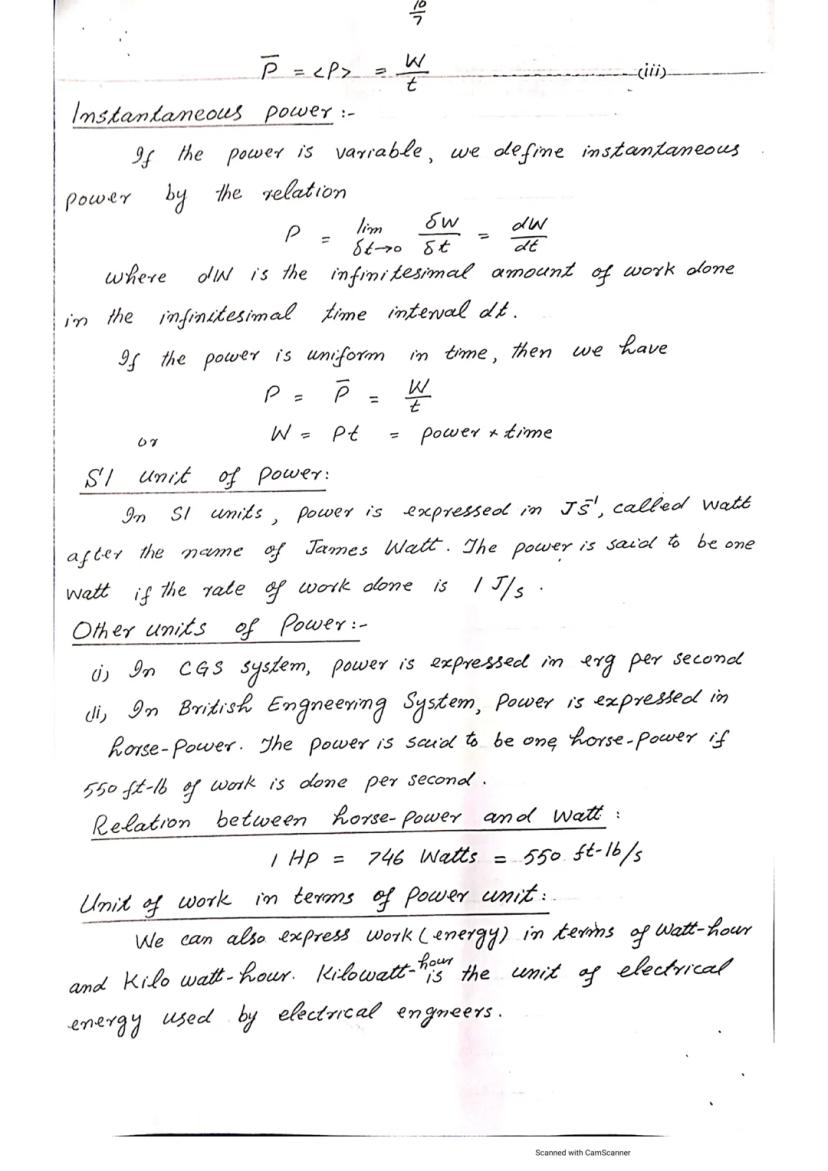 10
7
P̅ = <P> = W/t ........................(iii)
Instantaneous power :-
If the power is variable, we define instantaneous
power by the relation
P = lim δt→0 δW/δt = dW/dt
where dW is the infinitesimal amount of work done
in the infinitesimal time interval dt.
If the power is uniform in time, then we have
P = P̅ = W/t
or W = Pt = power × time
SI unit of power:
In SI units, power is expressed in Js⁻¹, called watt
after the name of James Watt. The power is said to be one
watt if the rate of work done is 1 J/s.
Other units of Power:-
(i) In CGS system, power is expressed in erg per second
(ii) In British Engneering System, Power is expressed in
horse-power. The power is said to be one horse-power if
550 ft-lb of work is done per second.
Relation between horse-power and watt:
1 HP = 746 Watts = 550 ft-lb/s
Unit of work in terms of Power unit:
We can also express work (energy) in terms of Watt-hour
and Kilo watt-hour. Kilowatt-hour is the unit of electrical
energy used by electrical engneers.
Scanned with CamScanner